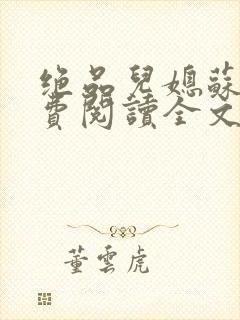 绝品兒媳蘇
費閱讀全文
董雲虎